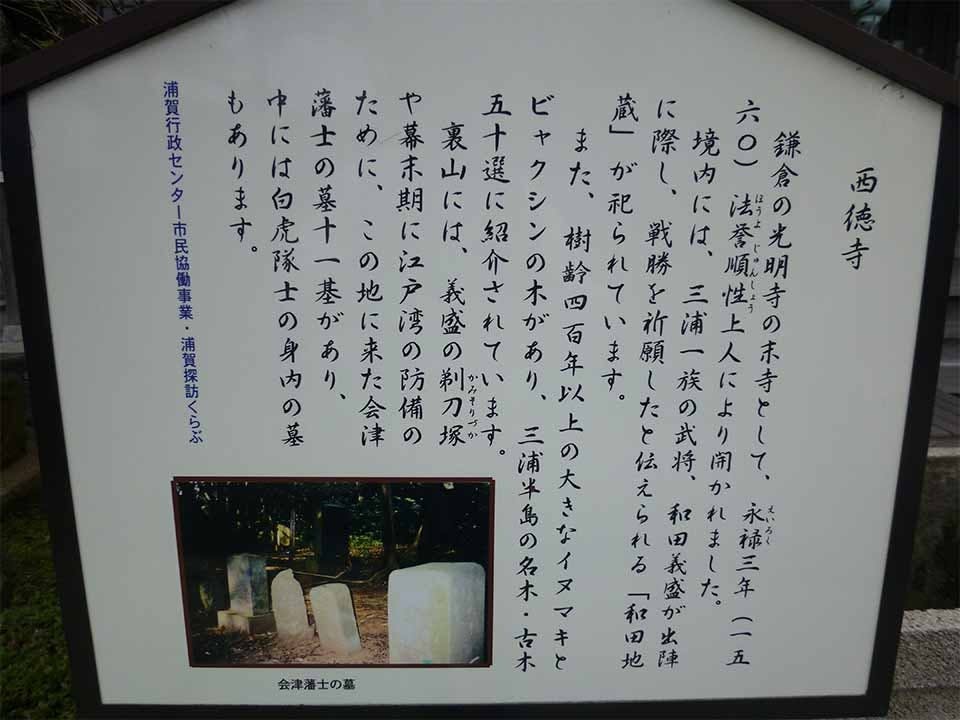 西徳寺
鎌倉の光明寺の末寺として、永禄三年（一五
えいろく
六〇）法誉順性上人により開かれました。
ほうよ じゅんしょう
境内には、三浦一族の武将、和田義盛が出陣
に際し、戦勝を祈願したと伝えられる「和田地
蔵」が祀られています。
また、樹齢四百年以上の大きなイヌマキと
ビャクシンの木があり、三浦半島の名木・古木
五十選に紹介されています。
裏山には、義盛の剃刀塚
かみそりづか
や幕末期に江戸湾の防備の
ために、この地に来た会津
藩士の墓十一基があり、
中には白虎隊士の身内の墓
もあります。
浦賀行政センター市民協働事業・浦賀探訪くらぶ
会津藩士の墓